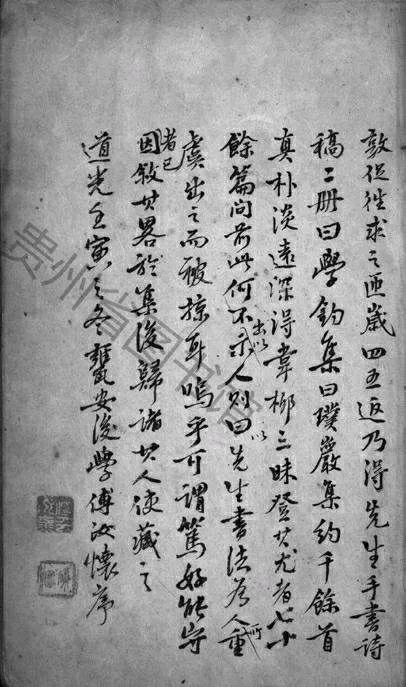 敦促往求之匝歲四五返乃得先生手書詩
稿二册曰學釣集曰璞巖集約千餘首
真朴淡遠深得韋柳三昧登其尤者七十
餘篇問前此何不出以示人則曰以先生書法為人所重
虞出之而被掠耳嗚乎可謂篤好能守
者已因敘其畧於集後歸諸其人使藏之
道光壬寅之冬甕安後學傅汝懷序
贵州省图书馆